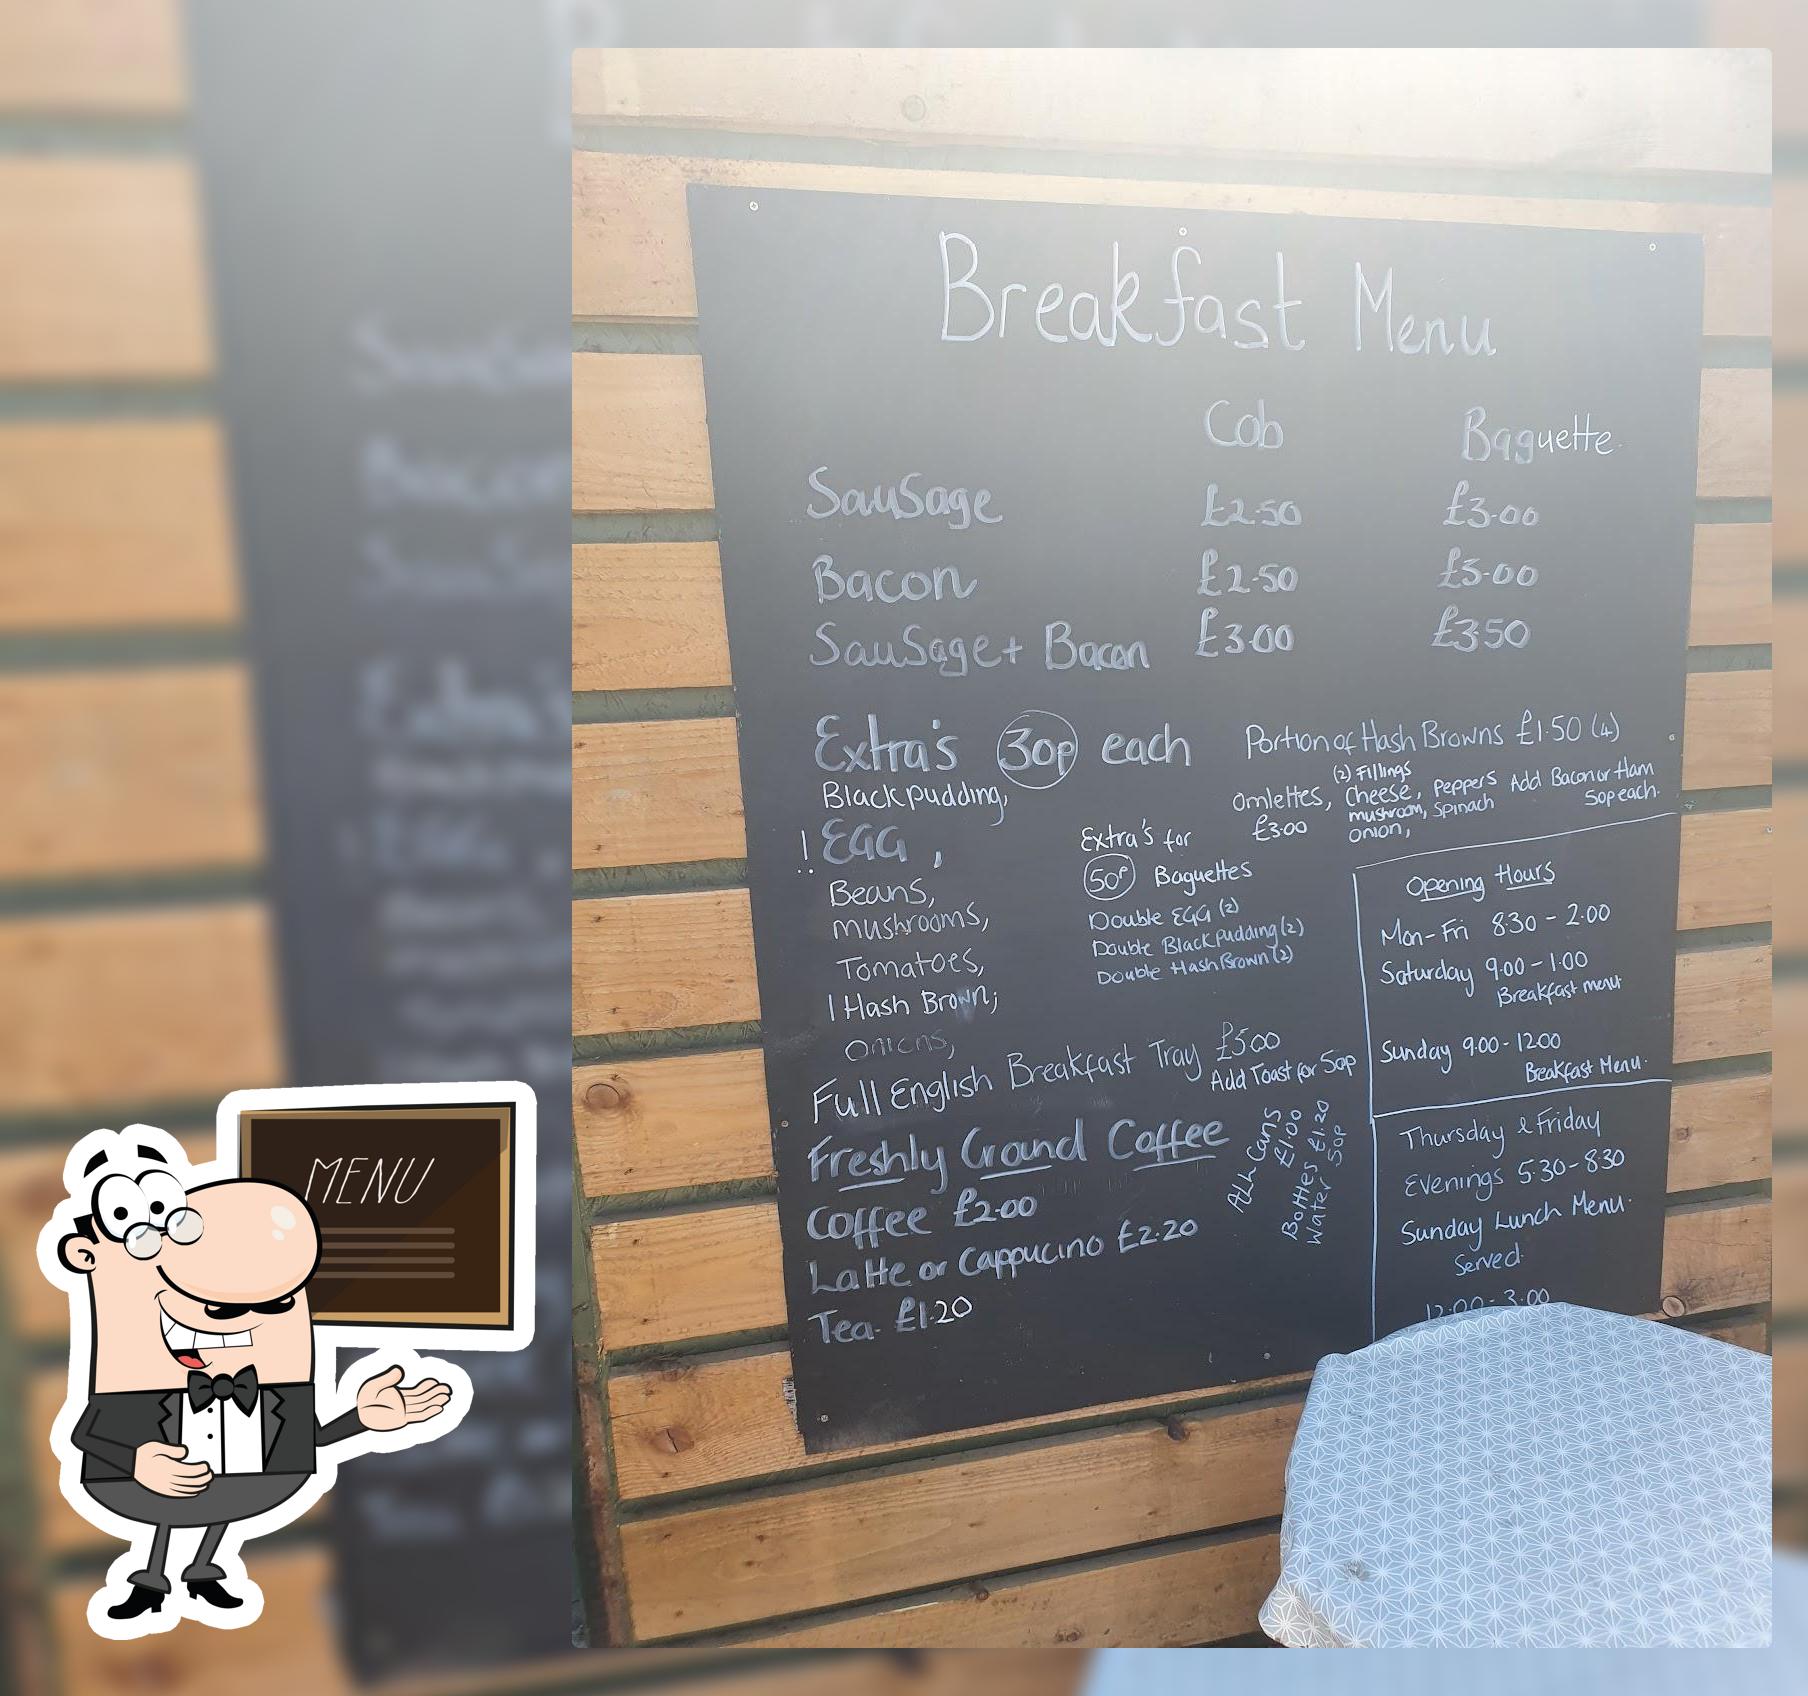 Breakfast Menu
Cob Baguette.
Sausage £2.50 £3.00
Bacon £2.50 £3.00
Sausage + Bacon £3.00 £3.50
Extra's 30p each
Blackpudding,
! EGG ,
Beans,
mushrooms,
Tomatoes,
1 Hash Brown,
onions,
Portion of Hash Browns £1.50 (4)
(2) Fillings
Omlettes, Cheese, Peppers Add Bacon or Ham
£3.00 mushroom, Spinach 50p each.
onion,
Extra's for
50p Baguettes
Double EGG (2)
Double Black pudding (2)
Double Hash Brown (2)
Full English Breakfast Tray £5.00
Add Toast for 50p
Freshly Ground Coffee
Coffee £2.00
Latte or Cappucino £2.20
Tea. £1.20
All Cans
£1.00
Bottles £1.20
Water 50p
Opening Hours
Mon-Fri 8.30 - 2.00
Saturday 9.00 - 1.00
Breakfast menu
Sunday 9.00 - 12.00
Breakfast Menu.
Thursday & Friday
Evenings 5.30 - 8.30
Sunday Lunch Menu.
Served
12.00 - 3.00
MENU